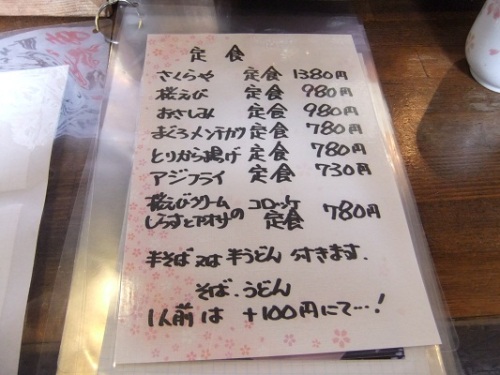 定食
さくらや 定食 1380円
桜えび 定食 980円
おさしみ 定食 980円
まぐろメンチカツ 定食 780円
とりから揚げ 定食 780円
アジフライ 定食 730円
桜えびクリーム コロッケ
しらすとアオサの 定食 780円
半そば 又は 半うどん 付きます.
そば.うどん
1人前は +100円にて…!